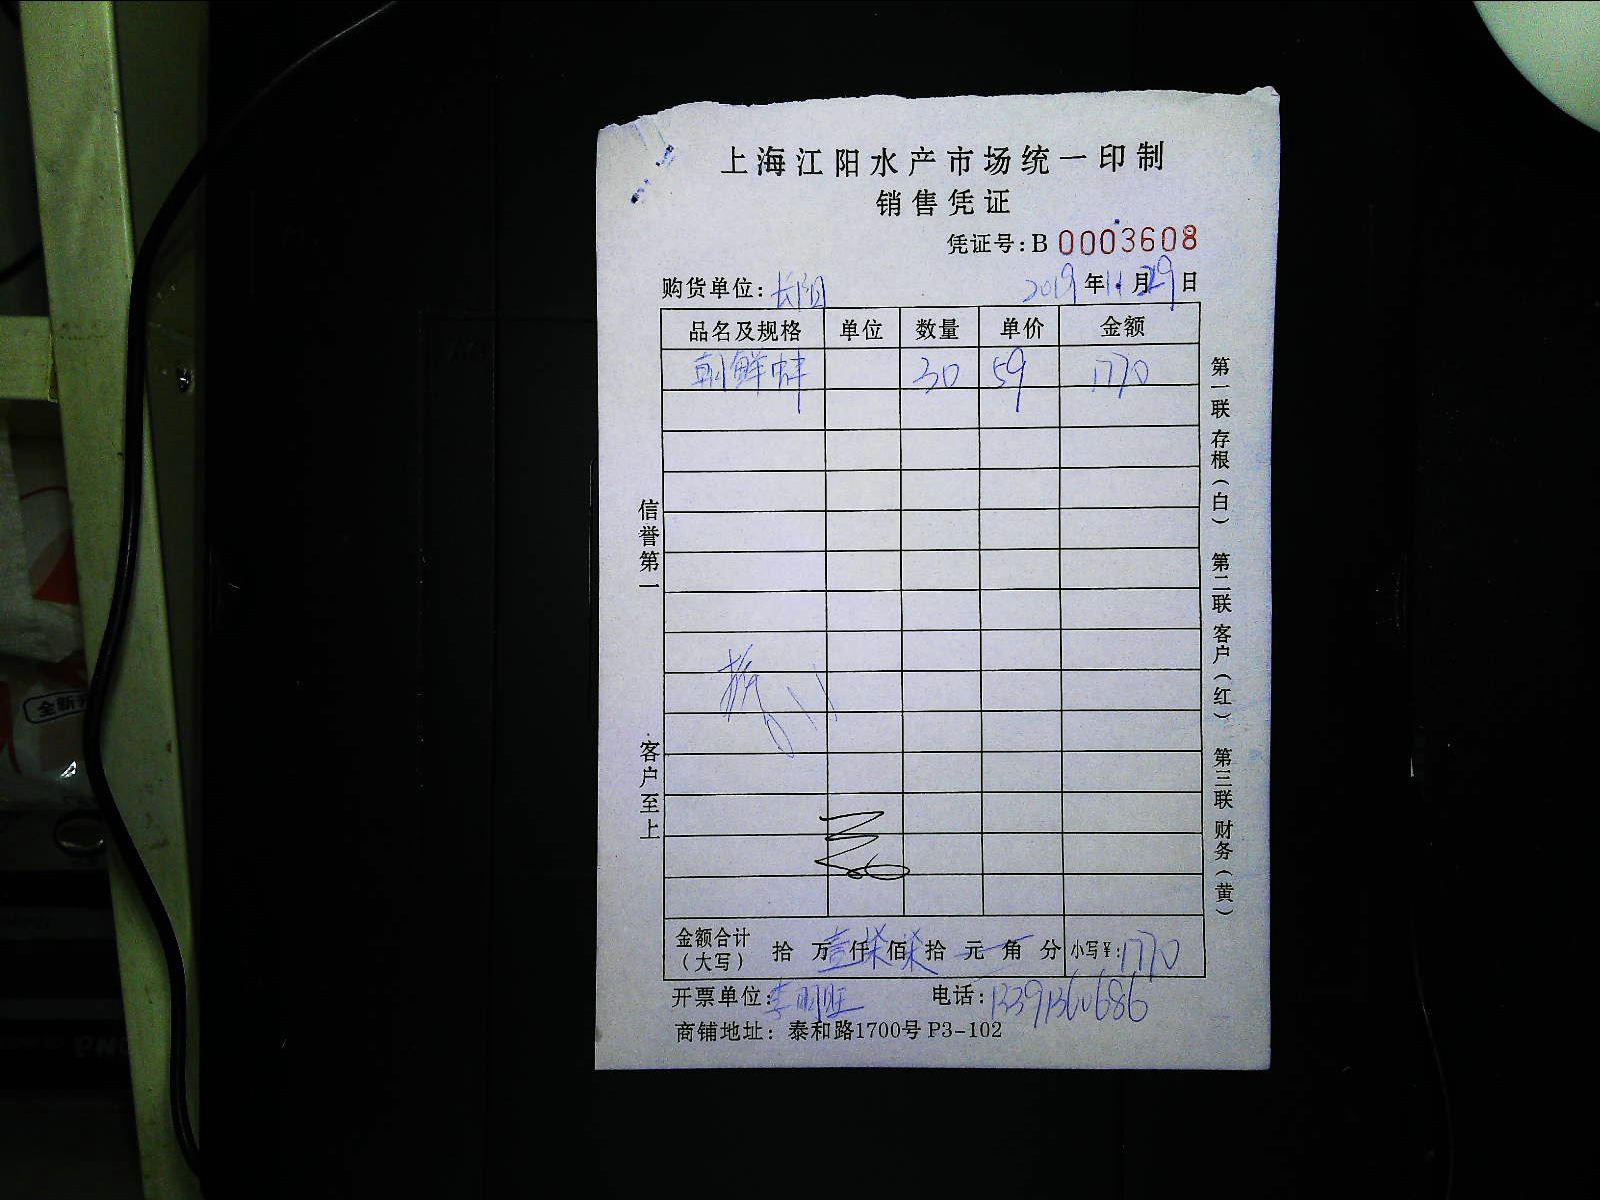 上海江阳水产市场统一印制
销售凭证
凭证号: B 0003608
购货单位: 长阳 2019年11月29日
品名及规格 单位 数量 单价 金额
朝鲜蚌 30 59 1770
信誉第一
客户至上
第一联 存根(白) 第二联 客户(红) 第三联 财务(黄)
金额合计(大写) 拾 万壹仟柒佰柒拾 元 角 分 小写¥: 1770
开票单位: 李明旺 电话: 13391360686
商铺地址: 泰和路1700号 P3-102
全新